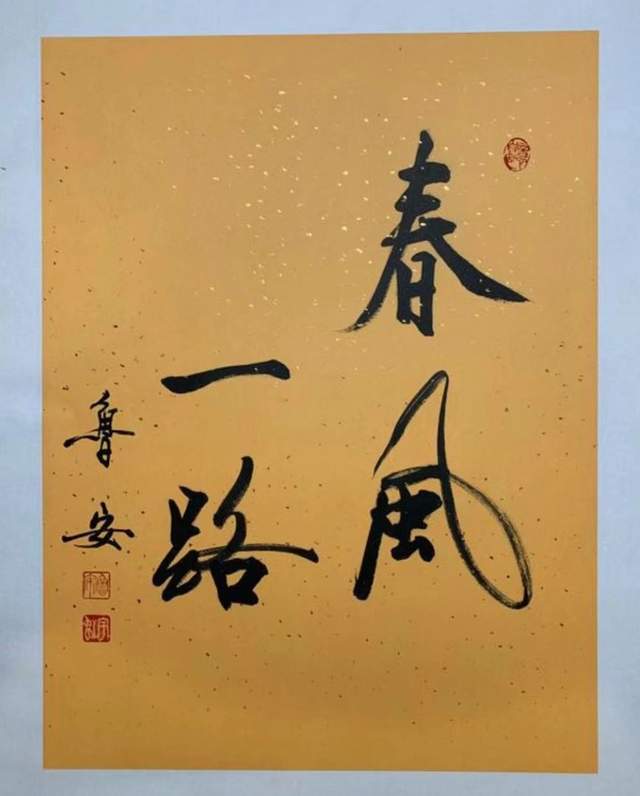 春風
一路
魯安